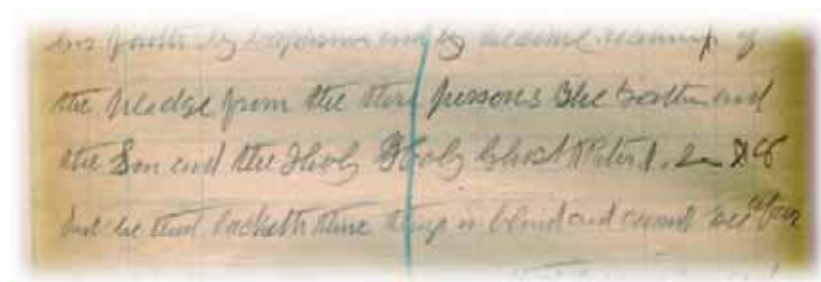 faith by baptism and by become receiving of
the pledge from the three persons the Father and
the Son and the Holy Holy Ghost Peter 1. 2
but he that lacketh these things is blind and cannot see afar